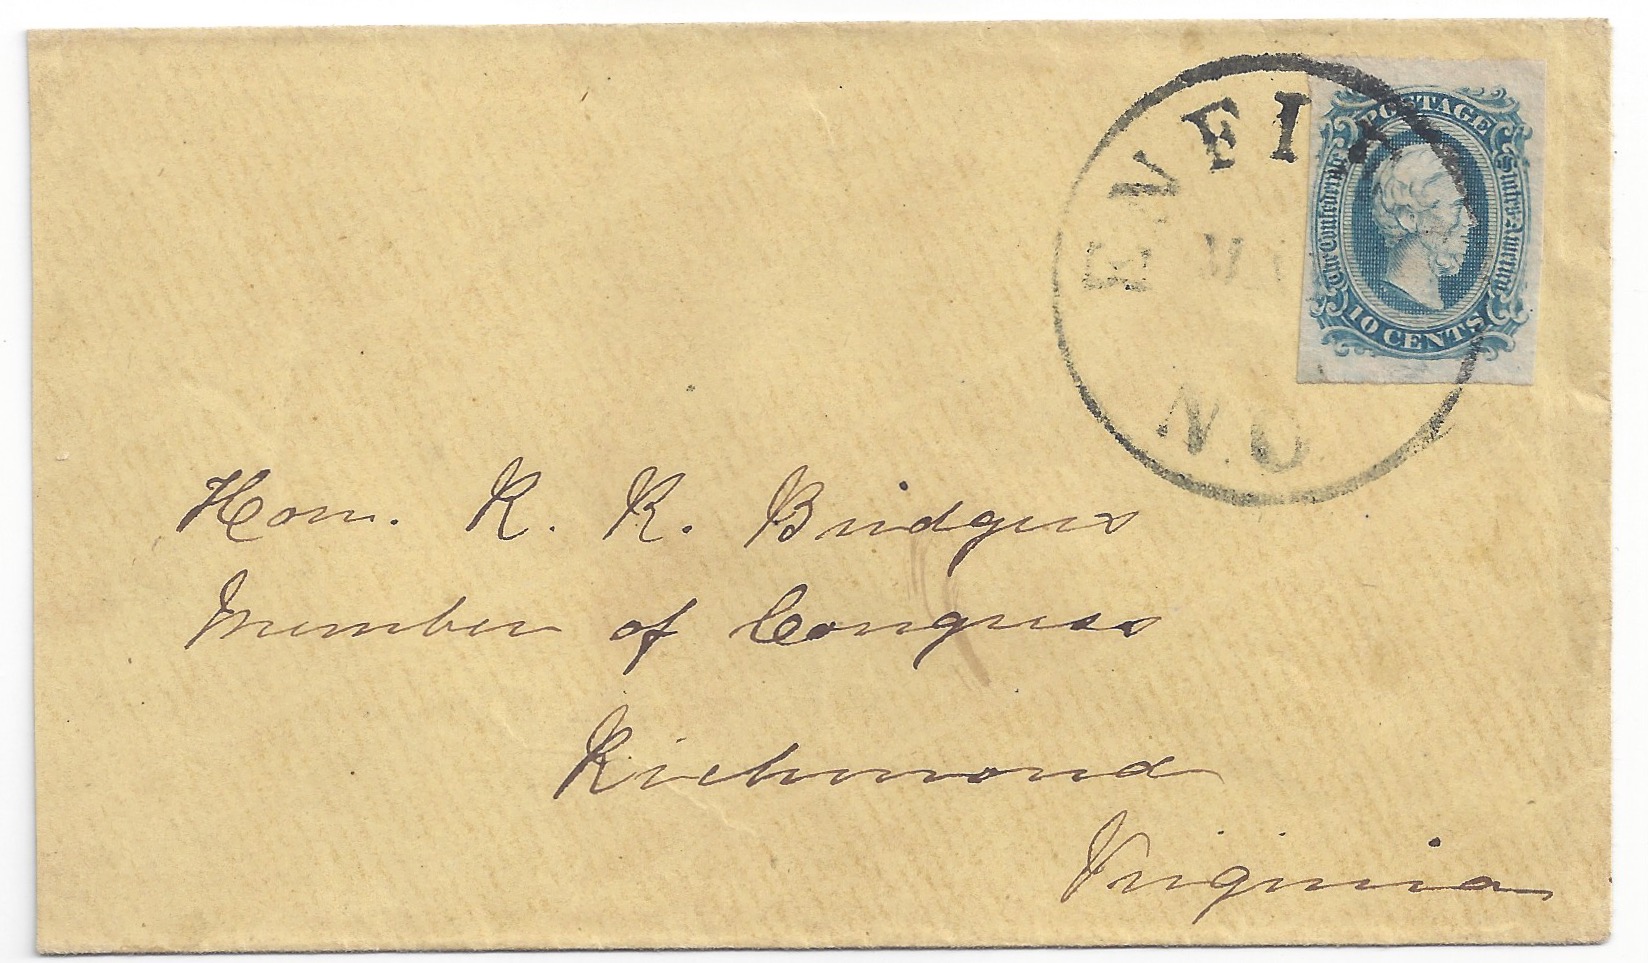 ENFI
N.C
POSTAGE
The Confederate States America
10 CENTS
Hon. R. R. Bridgers
Member of Congress
Richmond
Virginia